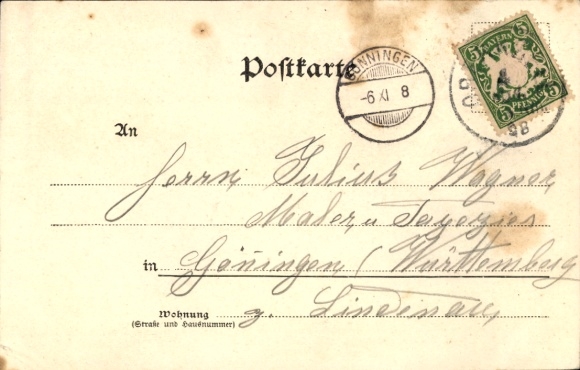 Postkarte
GÖNNINGEN
-6 XI 8
5 BAYERN 5
5 PFENNIG 5
98
An
Herrn Julius Wagner
Maler u Tapezier
in Gönningen (Württemberg
Wohnung z. Lindenau,
(Straße und Hausnummer)